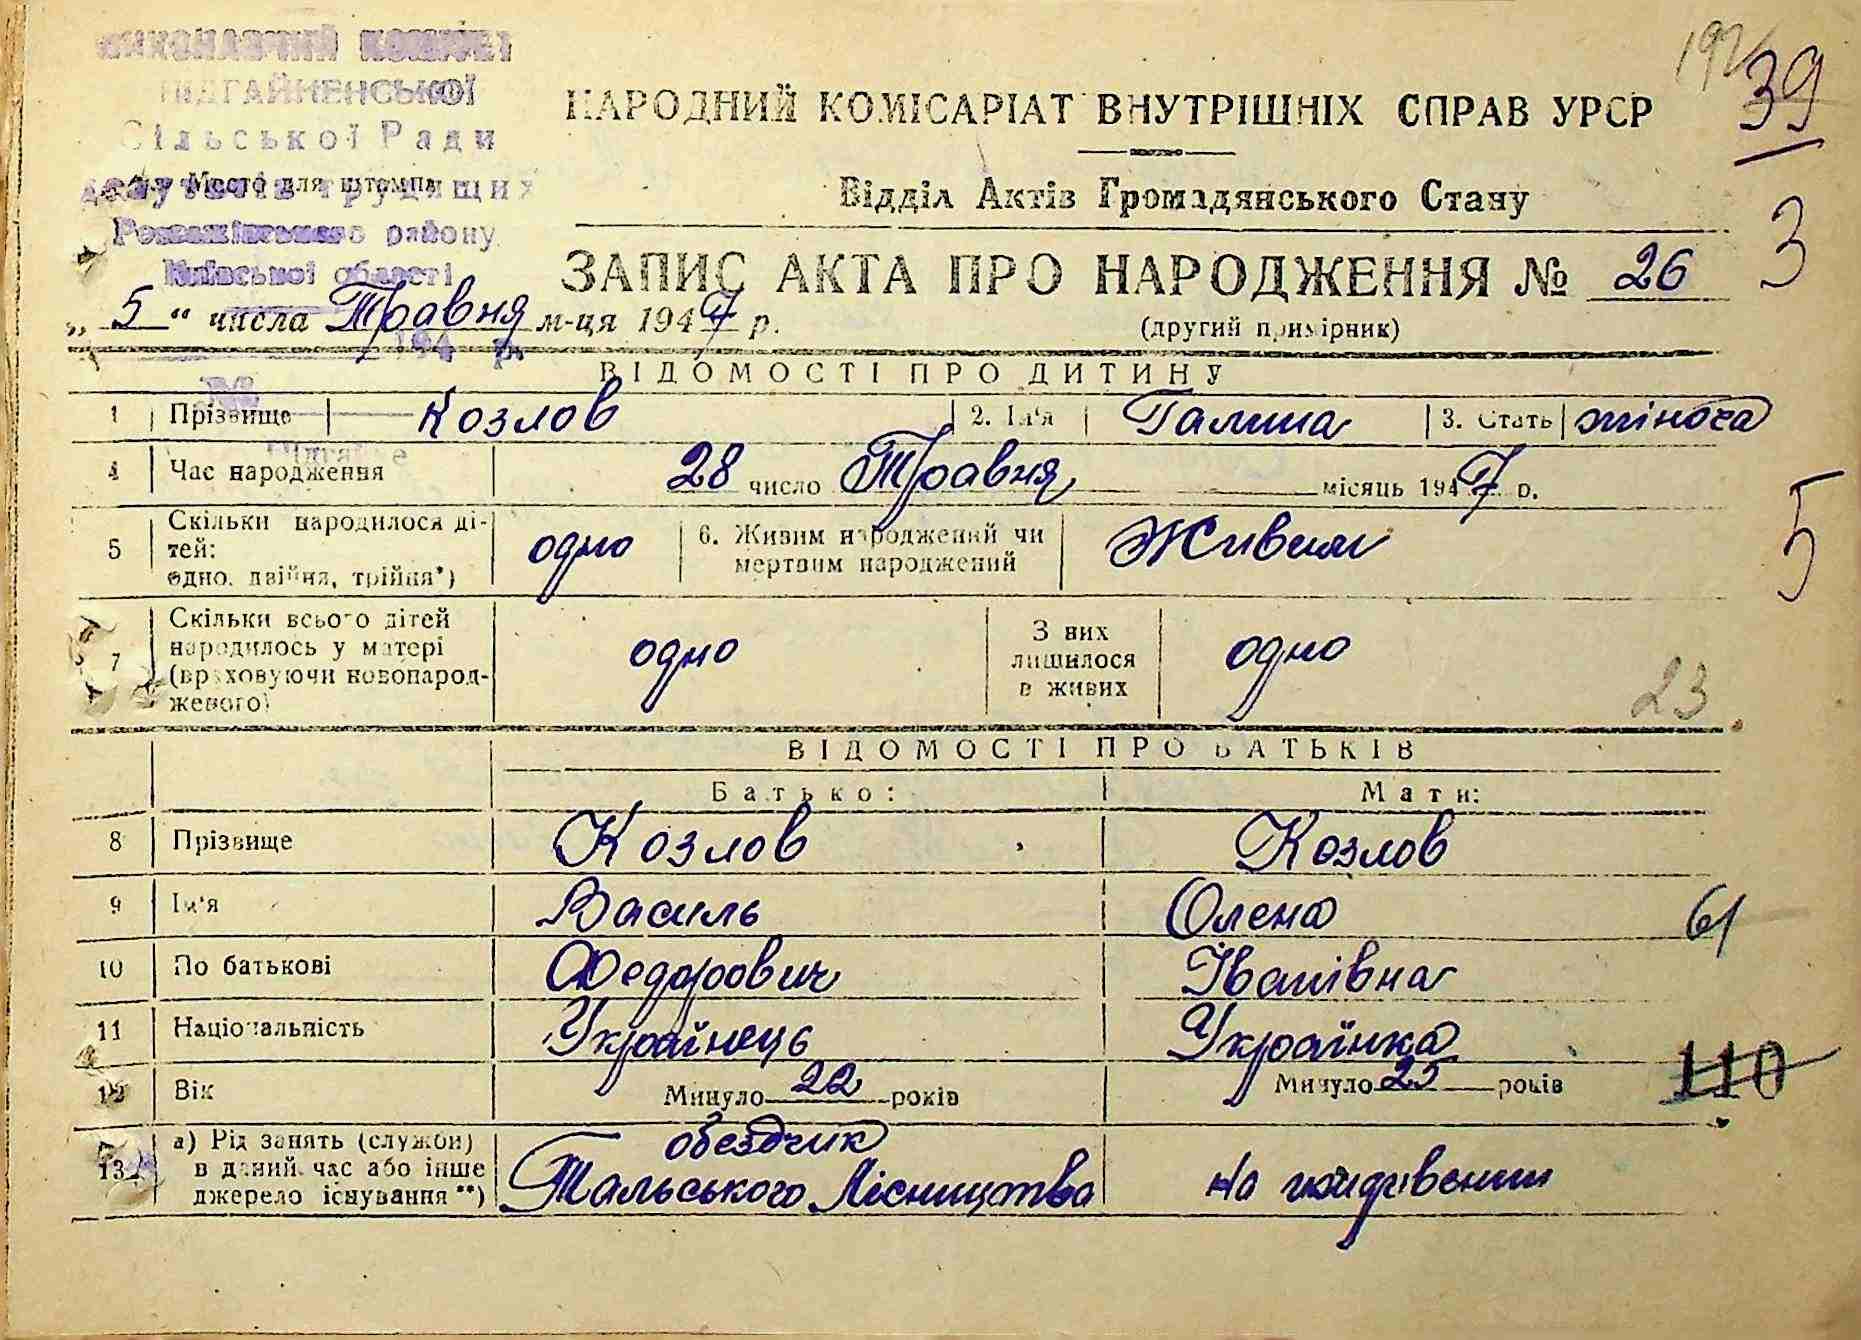 ВИКОНАВЧИЙ КОМІТЕТ
ПІДГАЙНЕНСЬКОЇ
Сільської Ради
депутатів трудящих
Місто для штампа
Розважівського району
Київської області
194 р.
39
НАРОДНИЙ КОМІСАРІАТ ВНУТРІШНІХ СПРАВ УРСР
Відділ Актів Громадянського Стану
3
ЗАПИС АКТА ПРО НАРОДЖЕННЯ № 26
„ 5 “ числа Травня м-ця 1947 р.
(другий примірник)
ВІДОМОСТІ ПРО ДИТИНУ
1 Прізвище Козлов 2. Ім'я Галина 3. Стать жіноча
4 Час народження 28 число Травня місяць 1947 р.
5 Скільки народилося ді-
тей:
одно, двійня, трійня*)
одно
6. Живим народжений чи
мертвим народжений
Живим
5
7 Скільки всього дітей
народилось у матері
(враховуючи новонарод-
женого)
одно
З них
лишилося
в живих
одно
23
ВІДОМОСТІ ПРО БАТЬКІВ
Батько: Мати:
8 Прізвище Козлов Козлов
9 Ім'я Василь Олена 61
10 По батькові Федорович Іванівна
11 Національність Українець Українка
12 Вік Минуло 22 років Минуло 25 років 110
13 а) Рід занять (служби)
в даний час або інше
джерело існування**)
обездчик
Тальського Лісництва
На иждивении